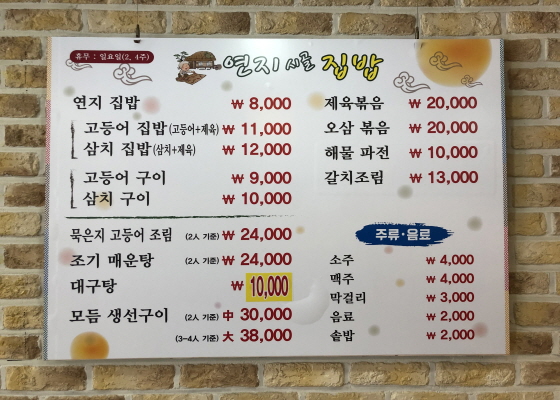 휴무 : 일요일(2, 4주)
연지 시골 집밥
연지 집밥 ₩ 8,000
고등어 집밥(고등어+제육) ₩ 11,000
삼치 집밥(삼치+제육) ₩ 12,000
고등어 구이 ₩ 9,000
삼치 구이 ₩ 10,000
묵은지 고등어 조림 (2인 기준) ₩ 24,000
조기 매운탕 (2인 기준) ₩ 24,000
대구탕 ₩ 10,000
모듬 생선구이 (2인 기준) 中 30,000
(3-4人 기준) 大 38,000
제육볶음 ₩ 20,000
오삼 볶음 ₩ 20,000
해물 파전 ₩ 10,000
갈치조림 ₩ 13,000
주류·음료
소주 ₩ 4,000
맥주 ₩ 4,000
막걸리 ₩ 3,000
음료 ₩ 2,000
솥밥 ₩ 2,000